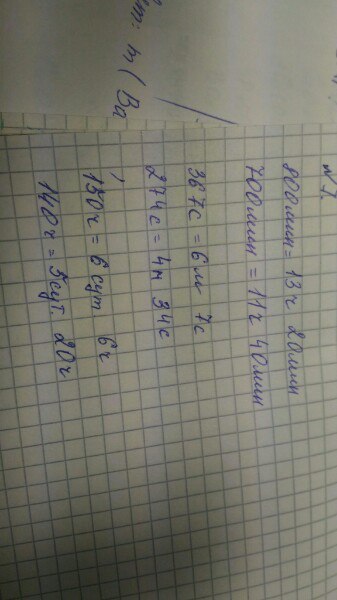 m: m (Ba
№ 7.
800мин = 13ч 20мин
700мин = 11ч 40мин
367с = 6м 7с
274с = 4м 34с
150ч = 6 сут 6ч
140ч = 5сут 20ч